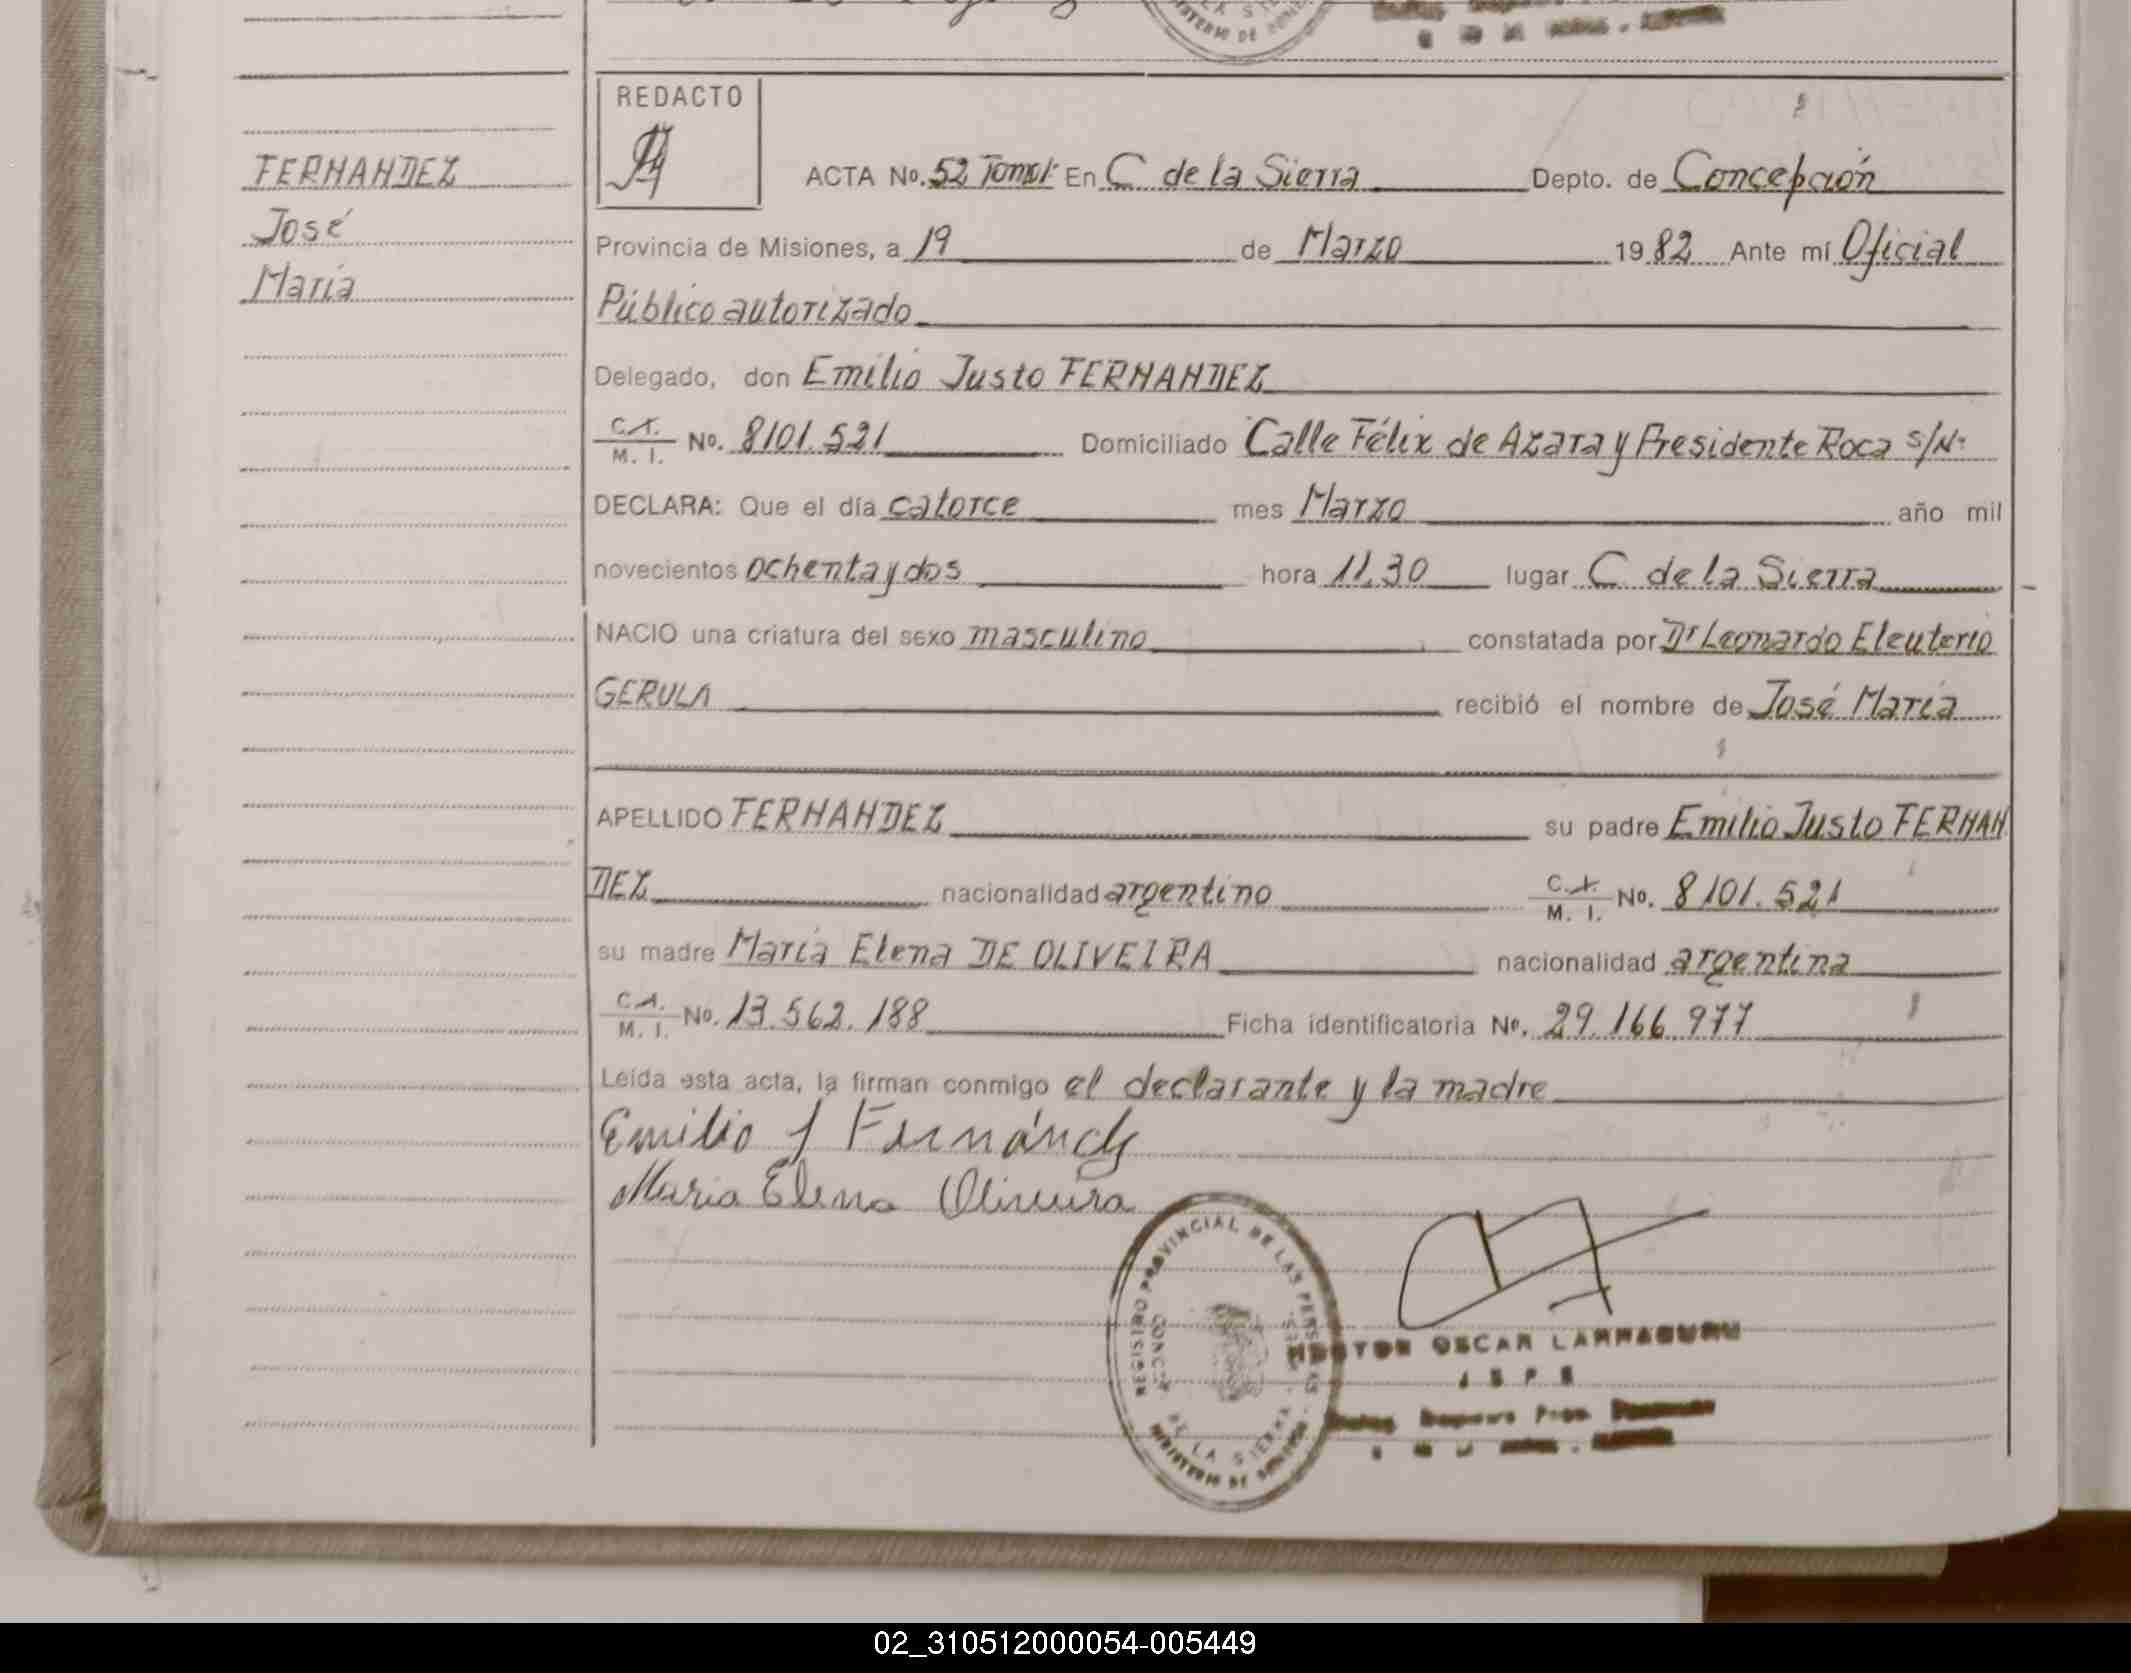 REDACTO
FERNANDEZ
José
María
ACTA No. 52 Tomo I En C de la Sierra Depto. de Concepción
Provincia de Misiones, a 19 de Marzo 1982 Ante mí Oficial
Público autorizado
Delegado, don Emilio Justo FERNANDEZ
C.I. M. I. No. 8101.521 Domiciliado Calle Félix de Azara y Presidente Roca S/Nº
DECLARA: Que el día catorce mes Marzo año mil
novecientos ochenta y dos hora 11,30 lugar C de la Sierra
NACIO una criatura del sexo masculino constatada por Dr Leonardo Eleuterio
GERULA recibió el nombre de José María
APELLIDO FERNANDEZ su padre Emilio Justo FERNAN
DEZ nacionalidad argentino C.I. M. I. No. 8101.521
su madre María Elena DE OLIVEIRA nacionalidad argentina
C.I. M. I. No. 13.562.188 Ficha identificatoria No. 29.166.977
Leída esta acta, la firman conmigo el declarante y la madre
Emilio J Fernández
Maria Elena Oliveira
REGISTRO PROVINCIAL DE LAS PERSONAS
DE LA SIERRA
MINISTERIO DE GOBIERNO
OSCAR
02_310512000054-005449